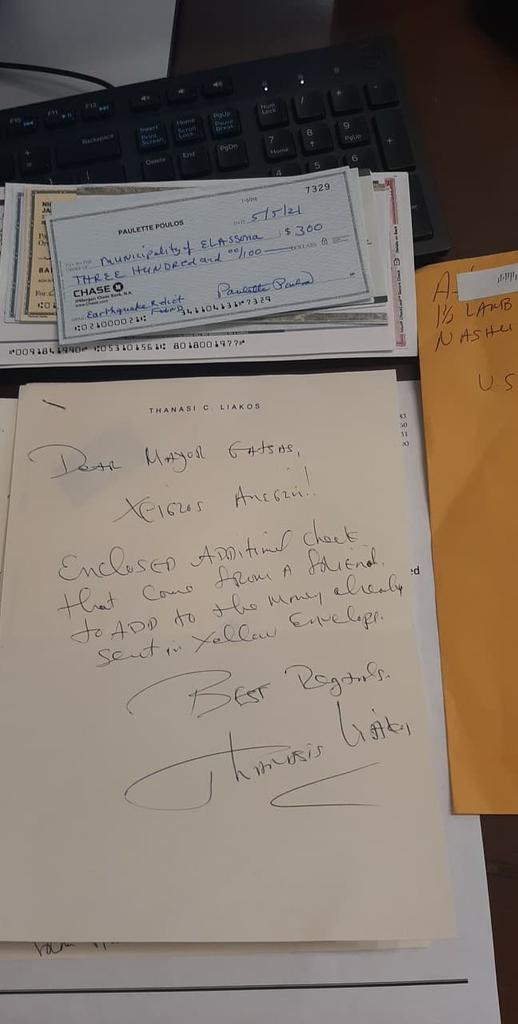 F10 F11 F12
Backspace
Insert
Print
Screen
Home
Scroll
Lock
PgUp
Pause
Break
Num
Lock
/
*
-
Delete
End
PgDn
7
Home
8
9
PgUp
+
4
5
6
7329
PAULETTE POULOS
DATE 5/5/21
Municipality of ELASSONA $ 300
THREE HUNDRED and 00/100 DOLLARS
CHASE
JPMorgan Chase Bank, N.A.
www.Chase.com
Earthquake Relief Fund Paulette Poulos
THANASI C. LIAKOS
Dear Mayor Gatsas,
Χριστος Ανεστη!!
Enclosed Additional check
that came from a friend.
to ADD to the money already
sent in Yellow Envelope.
Best Regards.
Thanasis Liakos
LAMB
NASHU
U.S